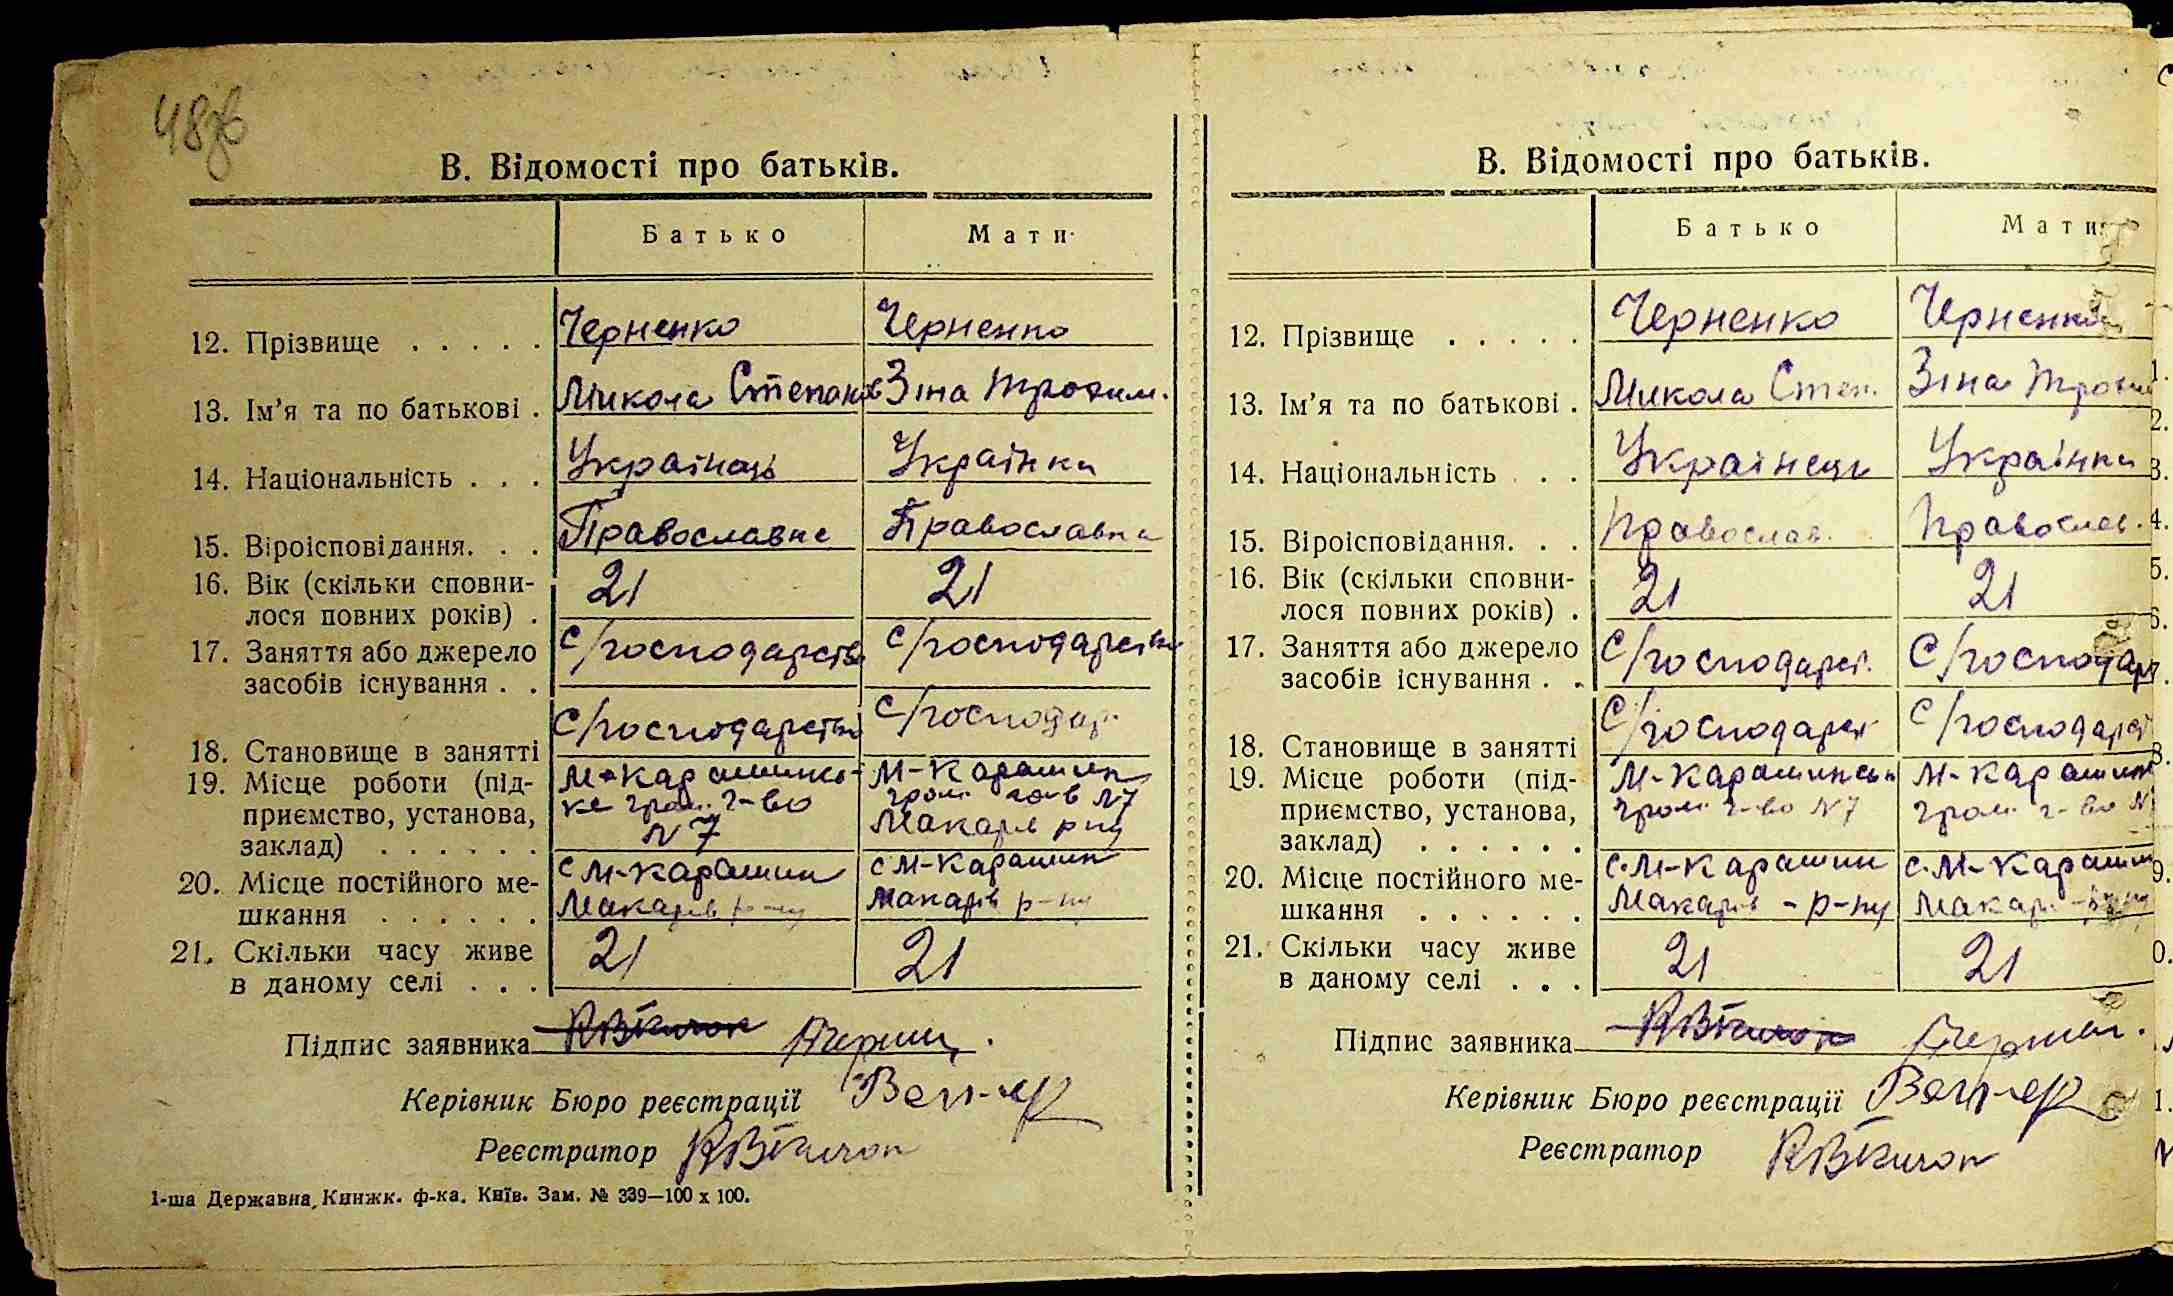 48
В. Відомості про батьків.
Батько Мати
12. Прізвище . . . . . Черненко Черненко
13. Ім'я та по батькові . Микола Степанов Зіна Трохим.
14. Національність . . . Українець Українка
15. Віроісповідання. . . Православне Православна
16. Вік (скільки сповни-
лося повних років) . 21 21
17. Заняття або джерело
засобів існування . . С/господарство С/господарство
18. Становище в занятті С/господарство С/господар.
19. Місце роботи (під-
приємство, установа,
заклад) . . . . . .
М-Карашинсь- М-Карашин
ке гром. г-во гром. N7
N 7 Макарів р-ну
20. Місце постійного ме-
шкання . . . . . .
с М-Карашин с М-Карашин
Макарів р-ну Макарів р-ну
21. Скільки часу живе
в даному селі . . . 21 21
Підпис заявника
Керівник Бюро реєстрації
Реєстратор
1-ша Державна Книжк. ф-ка. Київ. Зам. № 339—100 х 100.
В. Відомості про батьків.
Батько Мати
12. Прізвище . . . . . Черненко Черненко
13. Ім'я та по батькові . Микола Степ. Зіна Трохим
14. Національність . . . Українець Українка
15. Віроісповідання. . . Православ. Православ.
16. Вік (скільки сповни-
лося повних років) . 21 21
17. Заняття або джерело
засобів існування . . С/господарст. С/господар
18. Становище в занятті С/господарст С/господарст
19. Місце роботи (під-
приємство, установа,
заклад) . . . . . .
М-Карашинськ М-Карашин
гром г-во N7 гром. г-во N
20. Місце постійного ме-
шкання . . . . . .
с.М-Карашин с.М-Карашин
Макарів -р-ну Макарів
21. Скільки часу живе
в даному селі . . . 21 21
Підпис заявника
Керівник Бюро реєстрації
Реєстратор